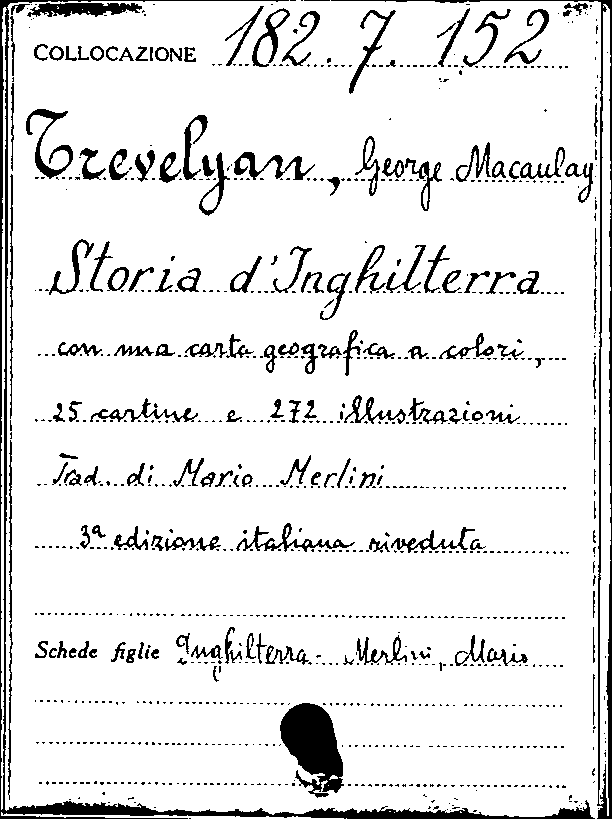 COLLOCAZIONE 182.7.152
Trevelyan, George Macaulay
Storia d'Inghilterra
con una carta geografica a colori,
25 cartine e 272 illustrazioni
Trad. di Mario Merlini
3ª edizione italiana riveduta
Schede figlie Inghilterra - Merlini, Mario